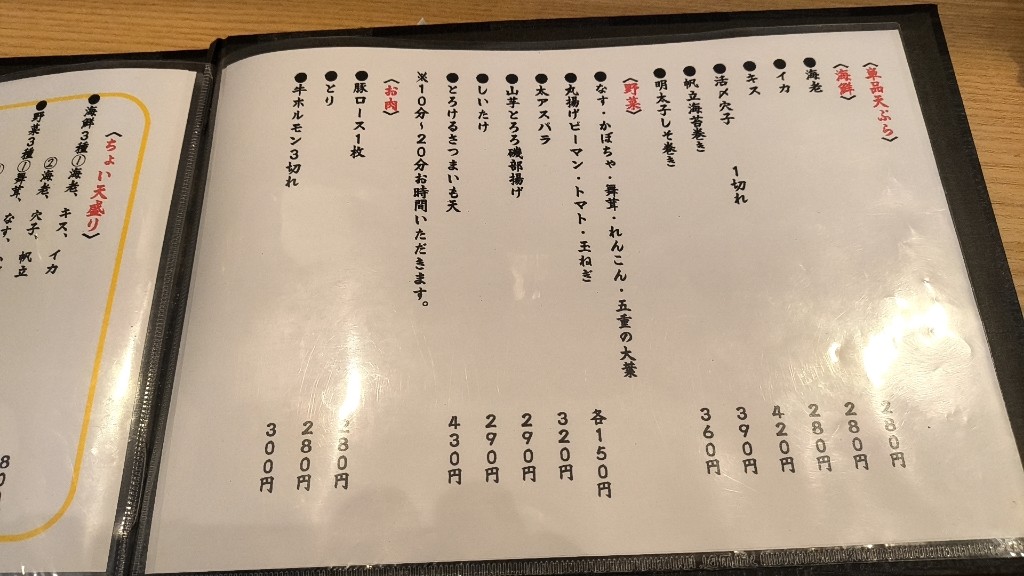 〈単品天ぷら〉
〈海鮮〉
●海老 280円
●イカ 280円
●キス 280円
●活〆穴子 1切れ 420円
●帆立海苔巻き 390円
●明太子しそ巻き 360円
〈野菜〉
●なす・かぼちゃ・舞茸・れんこん・五重の大葉
●丸揚げピーマン・トマト・玉ねぎ 各150円
●太アスパラ 320円
●山芋とろろ磯部揚げ 290円
●しいたけ 290円
●とろけるさつまいも天 430円
※10分〜20分お時間いただきます。
〈お肉〉
●豚ロース1枚 280円
●とり 280円
●牛ホルモン3切れ 300円
〈ちょい天盛り〉
●海鮮3種①海老、キス、イカ
②海老、穴子、帆立
●野菜3種①舞茸、なす、